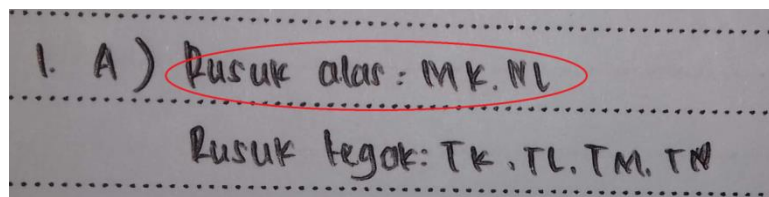 1. A) Rusuk alas : MK. NL
Rusuk tegak: TK. TL. TM. TN